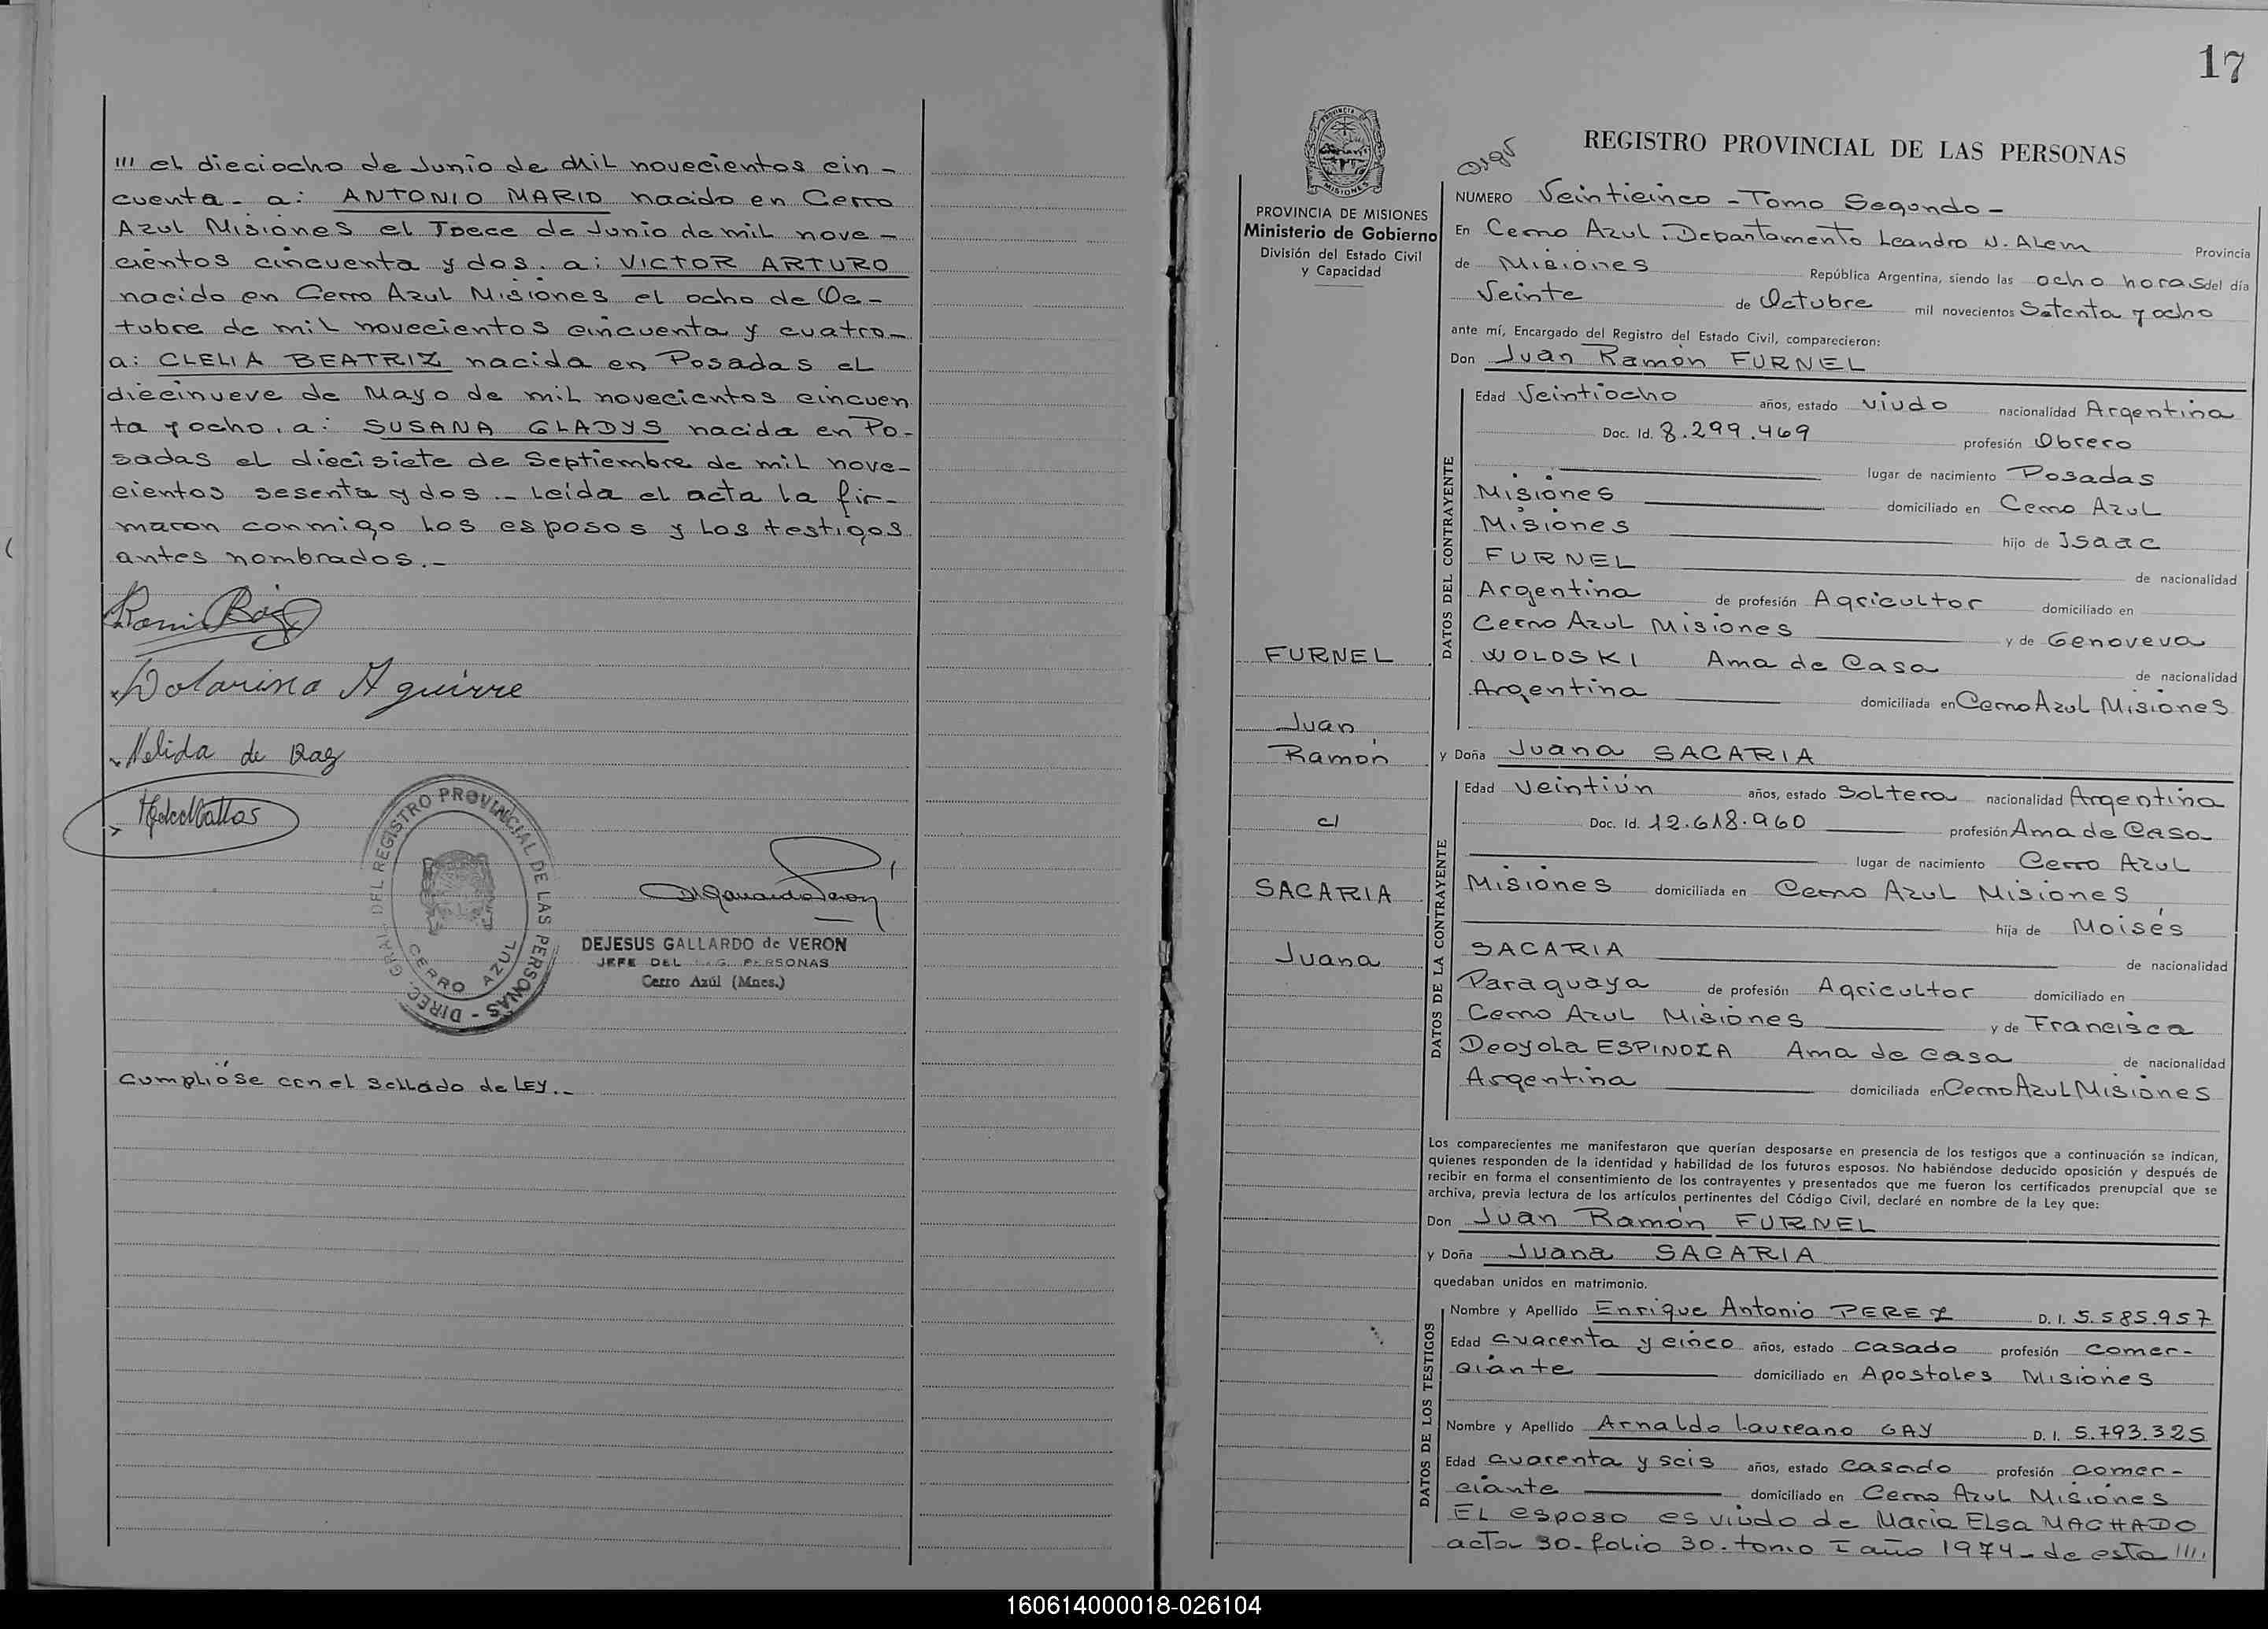 ''' el dieciocho de Junio de Mil novecientos cin-
cuenta - a: ANTONIO MARIO nacido en Cerro
Azul Misiones el Trece de Junio de mil nove-
cientos cincuenta y dos. a: VICTOR ARTURO
nacido en Cerro Azul Misiones el ocho de Oc-
tubre de mil novecientos cincuenta y cuatro-
a: CLELIA BEATRIZ nacida en Posadas el
diecinueve de Mayo de mil novecientos cincuen
ta y ocho. a: SUSANA GLADYS nacida en Po-
sadas el diecisiete de Septiembre de mil nove-
cientos sesenta y dos.- Leida el acta la fir-
maron conmigo los esposos y los testigos
antes nombrados.-
Dolarina Aguirre
Nelida de
GRAL. DEL REGISTRO PROVINCIAL DE LAS PERSONAS - DIREC.
CERRO AZUL
DEJESUS GALLARDO de VERON
JEFE DEL REG. PERSONAS
Cerro Azúl (Mnes.)
Cumplióse con el sellado de LEY.-
17
PROVINCIA DE MISIONES
Ministerio de Gobierno
División del Estado Civil
y Capacidad
FURNEL
Juan
Ramón
c/
SACARIA
Juana
REGISTRO PROVINCIAL DE LAS PERSONAS
NUMERO Veinticinco - Tomo Segundo -
En Cerro Azul. Departamento Leandro N. Alem Provincia
de Misiones República Argentina, siendo las ocho horas del día
Veinte de Octubre mil novecientos Setenta y ocho
ante mí, Encargado del Registro del Estado Civil, comparecieron:
Don Juan Ramón FURNEL
DATOS DEL CONTRAYENTE
Edad Veintiocho años, estado viudo nacionalidad Argentina
Doc. Id. 8.299.469 profesión Obrero
lugar de nacimiento Posadas
Misiones domiciliado en Cerro Azul
Misiones hijo de Isaac
FURNEL de nacionalidad
Argentina de profesión Agricultor domiciliado en
Cerro Azul Misiones y de Genoveva
WOLOSKI Ama de Casa de nacionalidad
Argentina domiciliada en Cerro Azul Misiones
y Doña Juana SACARIA
DATOS DE LA CONTRAYENTE
Edad Veintiún años, estado Soltera nacionalidad Argentina
Doc. Id. 12.618.960 profesión Ama de Casa
lugar de nacimiento Cerro Azul
Misiones domiciliada en Cerro Azul Misiones
hija de Moisés
SACARIA de nacionalidad
Paraguaya de profesión Agricultor domiciliado en
Cerro Azul Misiones y de Francisca
Deoyola ESPINOZA Ama de casa de nacionalidad
Argentina domiciliada en Cerro Azul Misiones
Los comparecientes me manifestaron que querían desposarse en presencia de los testigos que a continuación se indican,
quienes responden de la identidad y habilidad de los futuros esposos. No habiéndose deducido oposición y después de
recibir en forma el consentimiento de los contrayentes y presentados que me fueron los certificados prenupcial que se
archiva, previa lectura de los artículos pertinentes del Código Civil, declaré en nombre de la Ley que:
Don Juan Ramón FURNEL
y Doña Juana SACARIA
quedaban unidos en matrimonio.
DATOS DE LOS TESTIGOS
Nombre y Apellido Enrique Antonio PEREZ D. I. 5.585.957
Edad Cuarenta y cinco años, estado casado profesión comer-
ciante domiciliado en Apostoles Misiones
Nombre y Apellido Arnaldo Laureano GAY D. I. 5.793.325
Edad Cuarenta y seis años, estado casado profesión comer-
ciante domiciliado en Cerro Azul Misiones
EL esposo es viudo de Maria Elsa MACHADO
acta 30-folio 30-tomo I año 1974-de esta ////
160614000018-026104